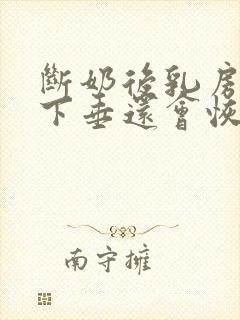 斷奶後乳房
下垂還會恢
南守擁